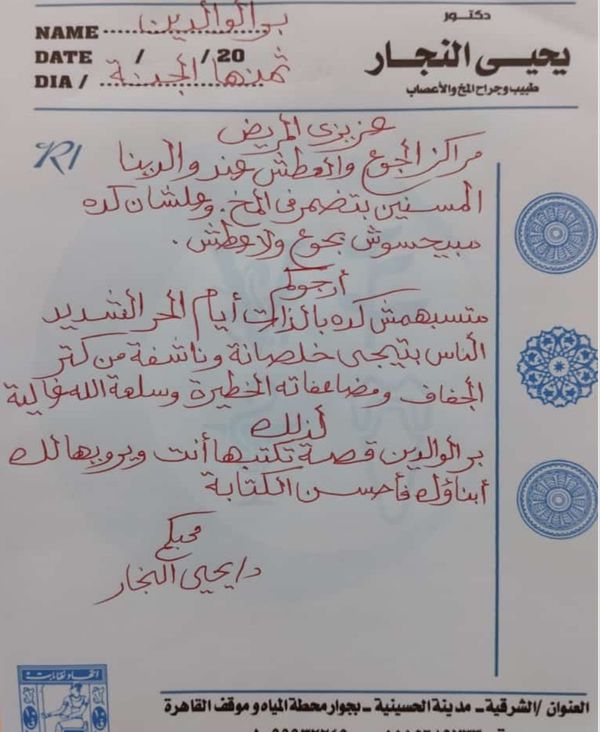 دكتور
يحيى النجار
طبيب وجراح المخ والأعصاب
NAME بر الوالدين
DATE / / 20
DIA / ثمنها الجنة
R/
عزيزى المريض
مراكز الجوع والعطش عند والدينا
المسنين بتضمر فى المخ. وعلشان كده
مبيحسوش بجوع ولا عطش.
أرجوكم
متسبهمش كده بالذات أيام الحر الشديد
الناس بتيجى خلصانة وناشفة من كتر
الجفاف ومضاعفاته الخطيرة وسلعة الله غالية
لذلك
بر الوالدين قصة تكتبها أنت ويرويها لك
أبناؤك فأحسن الكتابة
محبكم
د/ يحيى النجار
العنوان /الشرقية - مدينة الحسينية - بجوار محطة المياه وموقف القاهرة